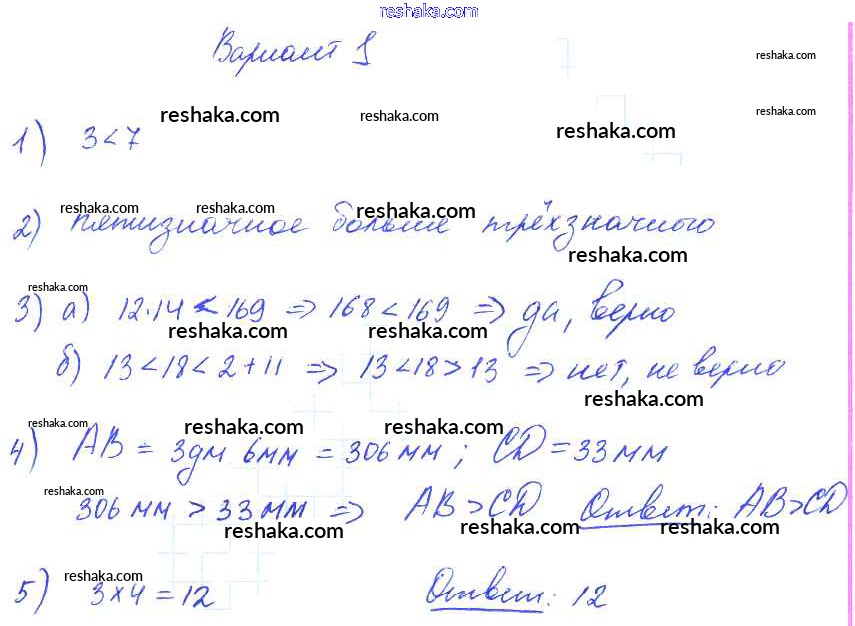 reshaka.com
Вариант 1
reshaka.com
reshaka.com reshaka.com reshaka.com reshaka.com
1) 3 < 7
reshaka.com reshaka.com reshaka.com
2) пятизначное больше трёхзначного
reshaka.com
reshaka.com
3) а) 12·14 < 169 => 168 < 169 => да, верно
reshaka.com reshaka.com
б) 13 < 18 < 2 + 11 => 13 < 18 > 13 => нет, не верно
reshaka.com
reshaka.com reshaka.com reshaka.com
4) AB = 3дм 6мм = 306 мм ; CD = 33 мм
reshaka.com
306 мм > 33 мм => AB > CD Ответ: AB > CD
reshaka.com reshaka.com reshaka.com
reshaka.com
5) 3 × 4 = 12 Ответ: 12